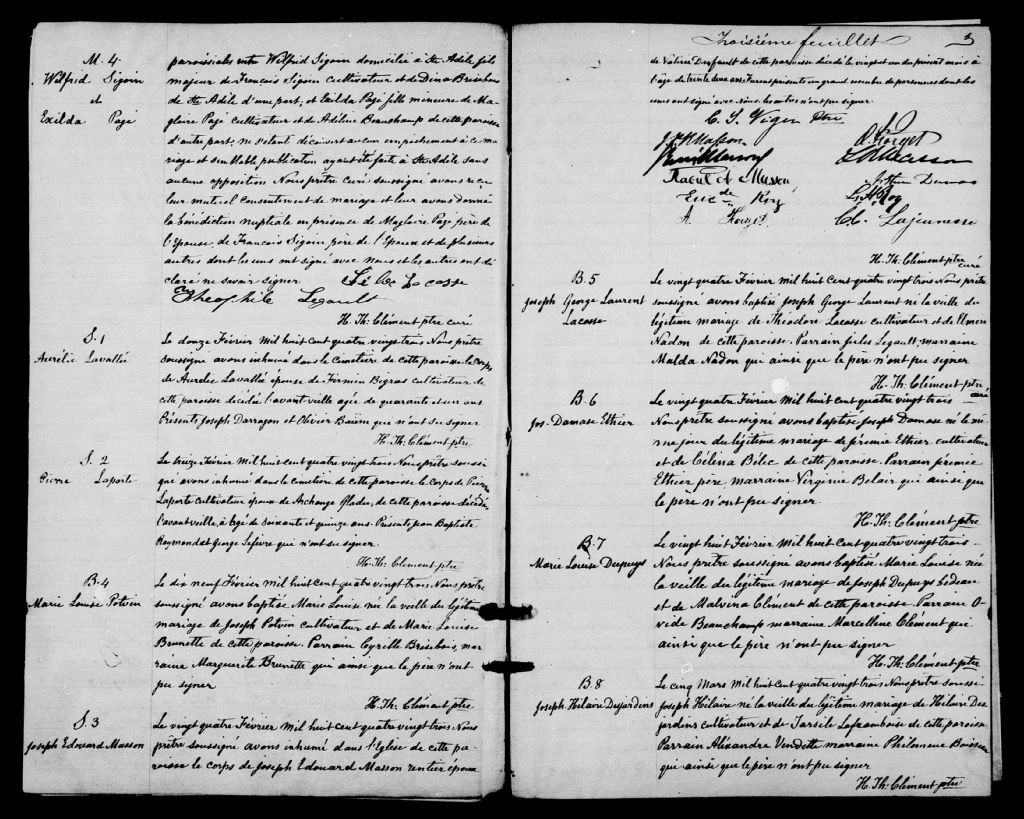 M. 4.
Wilfrid Sigouin
et
Exilda Pagé
paroissiales entre Wilfrid Sigouin domicilié à Ste Adèle fils
majeur de François Sigouin Cultivateur et de Dina Brisebois
de Ste Adèle d'une part, et Exilda Pagé fille mineure de Ma-
gloire Pagé cultivateur et de Adéline Beauchamp de cette paroisse
d'autre part, ne s'étant découvert aucun empêchement à ce ma-
riage et semblable publication ayant été faite à Ste Adèle sans
aucune opposition Nous prêtre curé soussigné avons reçu
leur mutuel consentement de mariage et leur avons donné
la bénédiction nuptiale en présence de Magloire Pagé père de
l'Epouse, de François Sigouin père de l'Epoux et de plusieurs
autres dont les uns ont signé avec nous et les autres ont dé-
claré ne savoir signer
Théophile Legault
H. Th: Clément ptre curé
S. 1
Aurélie Lavallée
Le douze Février mil huit cent quatre vingt trois Nous prêtre
soussigné avons inhumé dans le Cimetière de cette paroisse le corps
de Aurélie Lavallée épouse de Firmin Bigras cultivateur de
cette paroisse décédée l'avant veille agée de quarante et un ans
Présents Joseph Darragon et Olivier qui n'ont su signer
H. Th: Clément ptre
S. 2
Pierre Laporte
Le treize Février mil huit cent quatre vingt trois Nous prêtre soussi-
gné avons inhumé dans le cimetière de cette paroisse le Corps de Pierre
Laporte Cultivateur époux de Archange de cette paroisse décédé
l'avant veille, à l'age de soixante et quinze ans. Présents, Jean Baptiste
Raymond et George Lefèvre qui n'ont su signer.
H. Th: Clément ptre
B. 4
Marie Louise Potvin
Le dix neuf Février mil huit cent quatre vingt trois Nous prêtre
soussigné avons baptisé Marie Louise née la veille du légitime
mariage de Joseph Potvin cultivateur et de Marie Louise
Brunette de cette paroisse. Parrain Cyrille Brisebois, mar-
raine Marguerite Brunette qui ainsi que le père n'ont
pu signer
H. Th: Clément ptre
S. 3
Joseph Edouard Masson
Le vingt quatre Février mil huit cent quatre vingt trois Nous
prêtre soussigné avons inhumé dans l'Eglise de cette pa-
roisse le corps de Joseph Edouard Masson rentier époux
Troisième feuillet
3
de Valérie Dufault de cette paroisse décédé le vingt et un du présent mois à
l'âge de trente deux ans. Furent présents un grand nombre de personnes dont les
uns ont signé avec Nous les autres n'ont pu signer.
Viger ptre
Masson
Forget
Masson
Raoul A Masson
de Roy
A Forget
Roy
Lajeunesse
H. Th: Clément ptre
curé
B. 5
Joseph George Laurent
Lacasse
Le vingt quatre Février mil huit cent quatre vingt trois Nous prêtre
soussigné avons baptisé Joseph George Laurent né la veille du
légitime mariage de Théodore Lacasse cultivateur et de
Nadon de cette paroisse. Parrain Jules Legault, marraine
Malda Nadon qui ainsi que le père n'ont pu signer
H. Th: Clément ptre
curé
B. 6
Jos. Damase Ethier
Le vingt quatre Février mil huit cent quatre vingt trois
Nous prêtre soussigné avons baptisé Joseph Damase né le mê-
me jour du légitime mariage de Jérémie Ethier cultivateur
et de Célina Bélec de cette paroisse. Parrain Jérémie
Ethier père, marraine Virginie Belair qui ainsi que
le père n'ont pu signer.
H. Th: Clément ptre
B. 7
Marie Louise Dupuys
Le vingt huit Février mil huit cent quatre vingt trois
Nous prêtre soussigné avons baptisé Marie Louise née
la veille du légitime mariage de Joseph Dupuys bedeau
et de Malvina Clément de cette paroisse. Parrain O-
vide Beauchamp marraine Marcelline Clément qui
ainsi que le père n'ont pu signer
H. Th: Clément ptre
B. 8
Joseph Hilaire Desjardins
Le cinq Mars mil huit cent quatre vingt trois Nous prêtre soussi-
Joseph Hilaire né la veille du légitime mariage de Hilaire Des-
jardins cultivateur et de Tarsile Laframboise de cette paroisse
Parrain Alexandre Vendette marraine Philomène
qui ainsi que le père n'ont pu signer
H. Th: Clément ptre